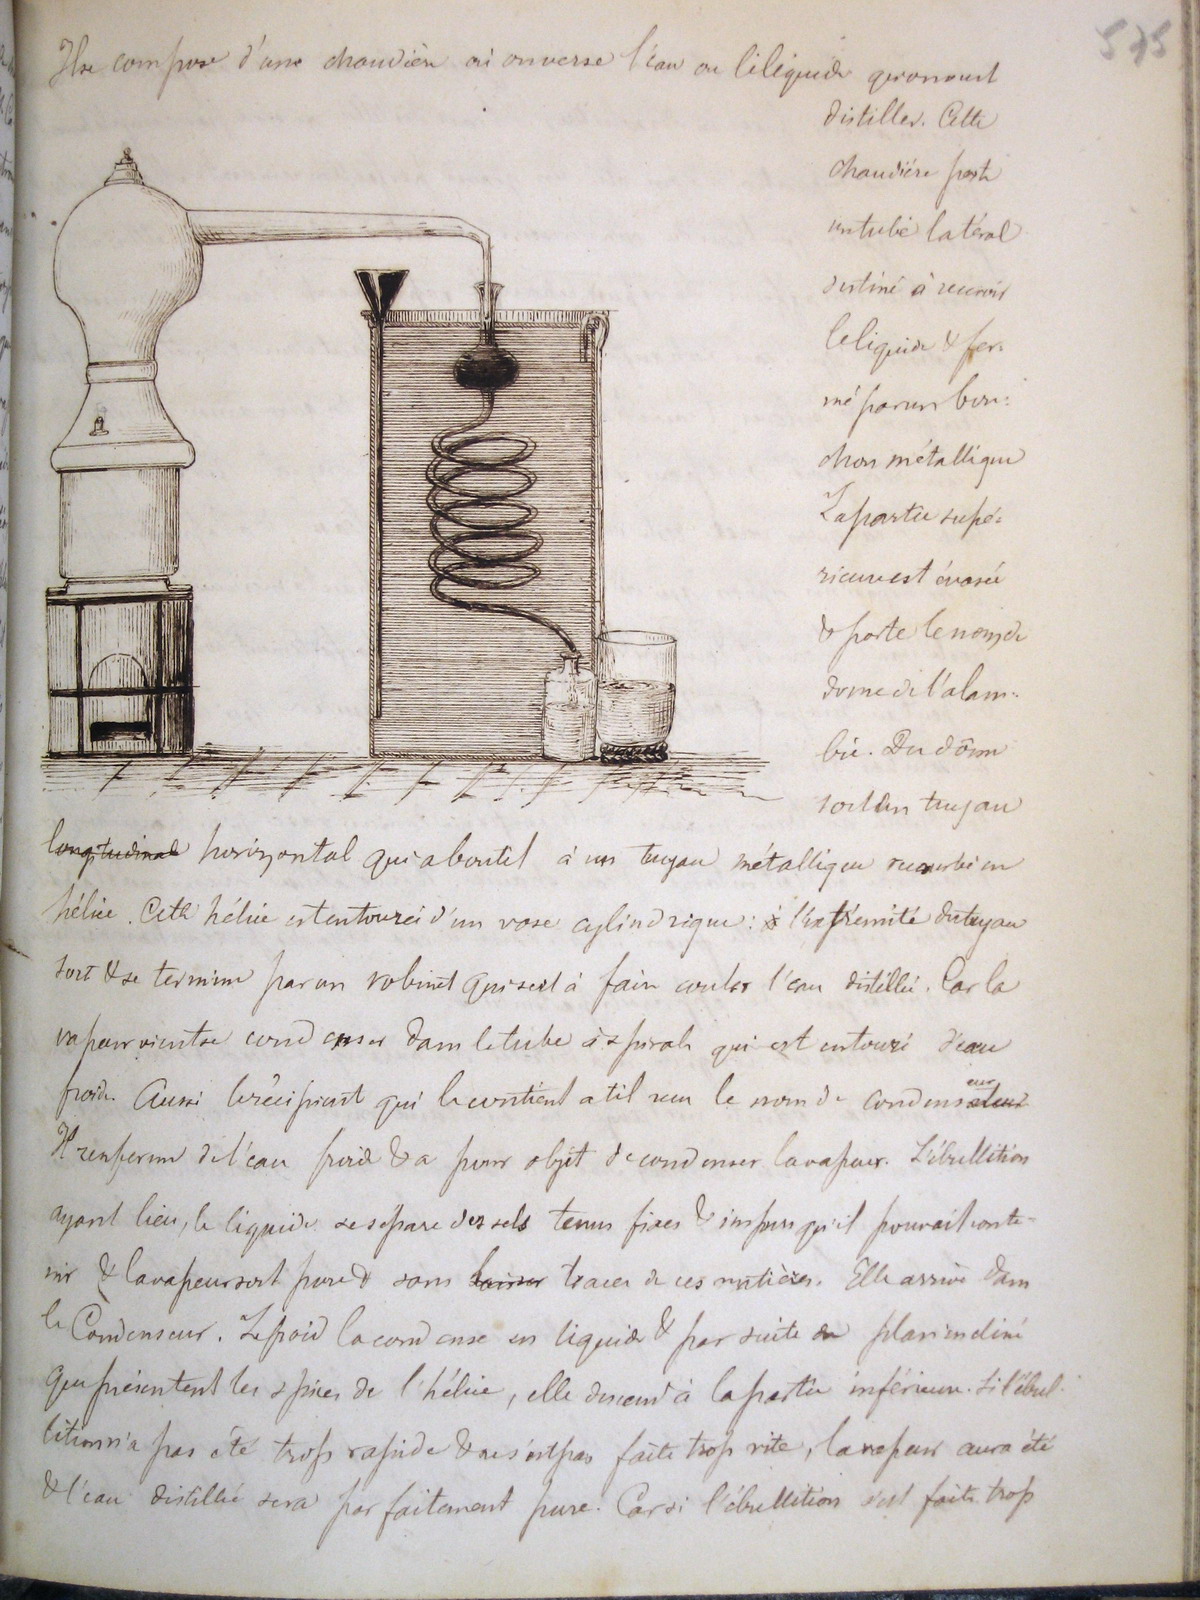 575
Il se compose d'une chaudière où on verse l'eau ou le liquide qu'on veut
distiller. Cette
chaudière porte
un tube latéral
destiné à recevoir
le liquide & fer-
mé par un bou-
chon métallique
La partie supé-
rieure est évasée
& porte le nom de
dome de l'alam-
bic. Du dôme
sort un tuyau
longitudinal horizontal qui aboutit à un tuyau métallique recourbé en
hélice. Cette hélice est entourée d'un vase cylindrique : l'extrémité du tuyau
sort & se termine par un robinet qui sert à faire couler l'eau distillée. Car la
vapeur vient se condenser dans le tube à spirale qui est entouré d'eau
froide. Aussi le récipient qui le contient a til reçu le nom de condenseur
Il renferme de l'eau froide & a pour objet de condenser la vapeur. L'ébullition
ayant lieu, le liquide se sépare des sels tenus fixes & impurs qu'il pouvait conte-
nir & la vapeur sort pure & sans laisser traces de ces matières. Elle arrive dans
le Condenseur. Le froid la condense en liquide & par suite du plan incliné
que présentent les spires de l'hélice, elle descend à la partie inférieure. Si l'ébul-
lition n'a pas été trop rapide & ne s'est pas faite trop vite, la vapeur aura été
& l'eau distillée sera parfaitement pure. Car si l'ébullition s'est faite trop